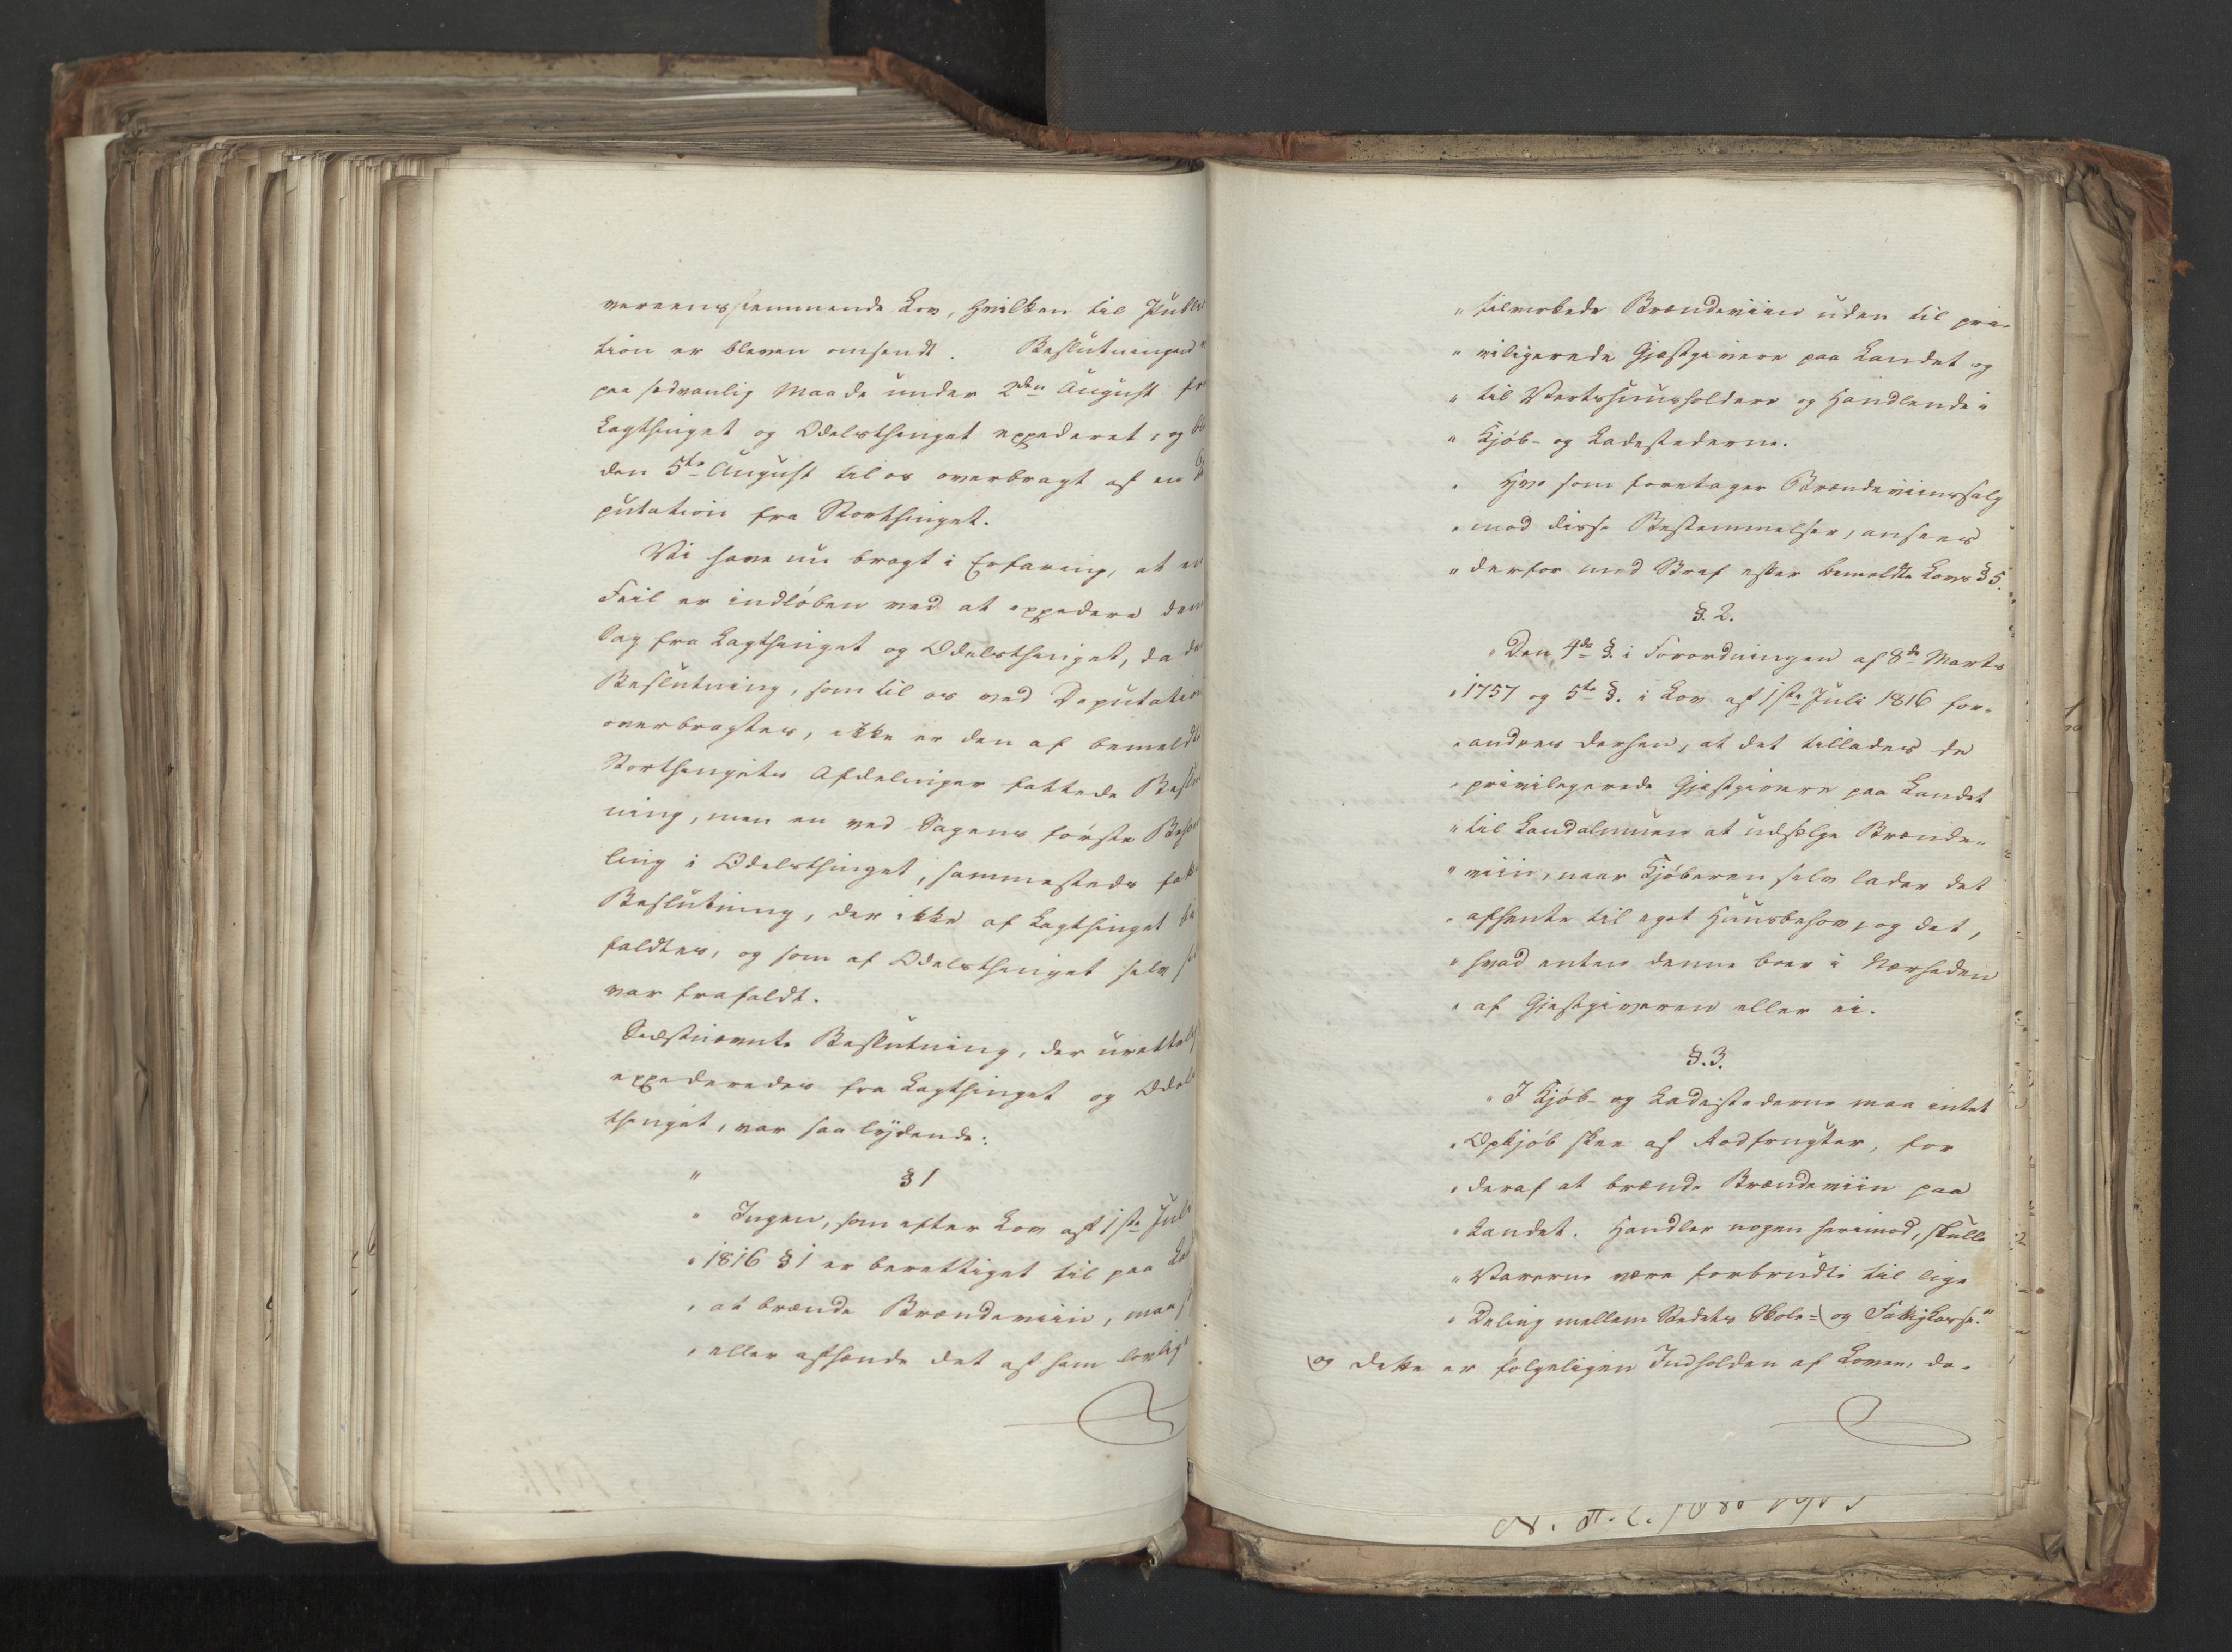 vereensstemmende Lov, hvilken til Publi
tion er bleven omsendt. Beslutningen
paa sædvanlig Maade under 2den August fra
Lagthinget og Odelsthinget expederet, og bl
den 5te August til os overbragt af en De
putation fra Storthinget.
Vi have nu bragt i Erfaring, at en
Feil er indløben ved at expedere den
Sag fra Lagthinget og Odelsthinget, da de
Beslutning, som til os ved Deputation
overbragtes, ikke er den af bemeldte
Storthingets Afdelinger fattede Beslut
ning, men en ved Sagens første Behan
ling i Odelsthinget, sammesteds fatt
Beslutning, der ikke af Lagthinget bi
faldtes, og som af Odelsthinget selv
var frafaldt.
Sidstnævnte Beslutning, der urettelig
expederedes fra Lagthinget og Odels
thinget, var saa lydende:
" § 1
" Ingen, som efter Lov af 1ste Juli
" 1816 § 1 er berettiget til paa Lan
" at brænde Brændeviin, maa s
" eller afhænde det af ham lovlig
" tilvirkede Brændeviin uden til pri-
" viligerede Gjæstgivere paa Landet og
" til Vertshuusholdere og Handlende i
" Kjøb- og Ladestederne.
" Hvo som foretager Brændeviinssalg
" mod disse Bestemmelser, ansees
" derfor med Straf efter bemeldte Lovs § 5.
§. 2.
" Den 4de §. i Forordningen af 8de Marts
" 1757 og 5te §. i Lov af 1ste Juli 1816 for-
" andres derhen, at det tillades de
" privilegerede Gjæstgivere paa Landet
" til Landalmuen at udsælge Brænde-
" viin, naar Kjøberen selv lader det
" afhente til eget Huusbehov, og det,
" hvad enten denne boer i Nærheden
" af Gjæstgiveren eller ei.
§. 3.
" I Kjøb- og Ladestederne maa intet
" Opkjøb skee af Rodfrugter, for
" deraf at brænde Brændeviin paa
" Landet. Handler nogen herimod, skulle
" Varerne være forbrudte til lige
" Deling mellem Stedets Skole- og Fattigkasse."
og dette er følgeligen Indholden af Loven, da-